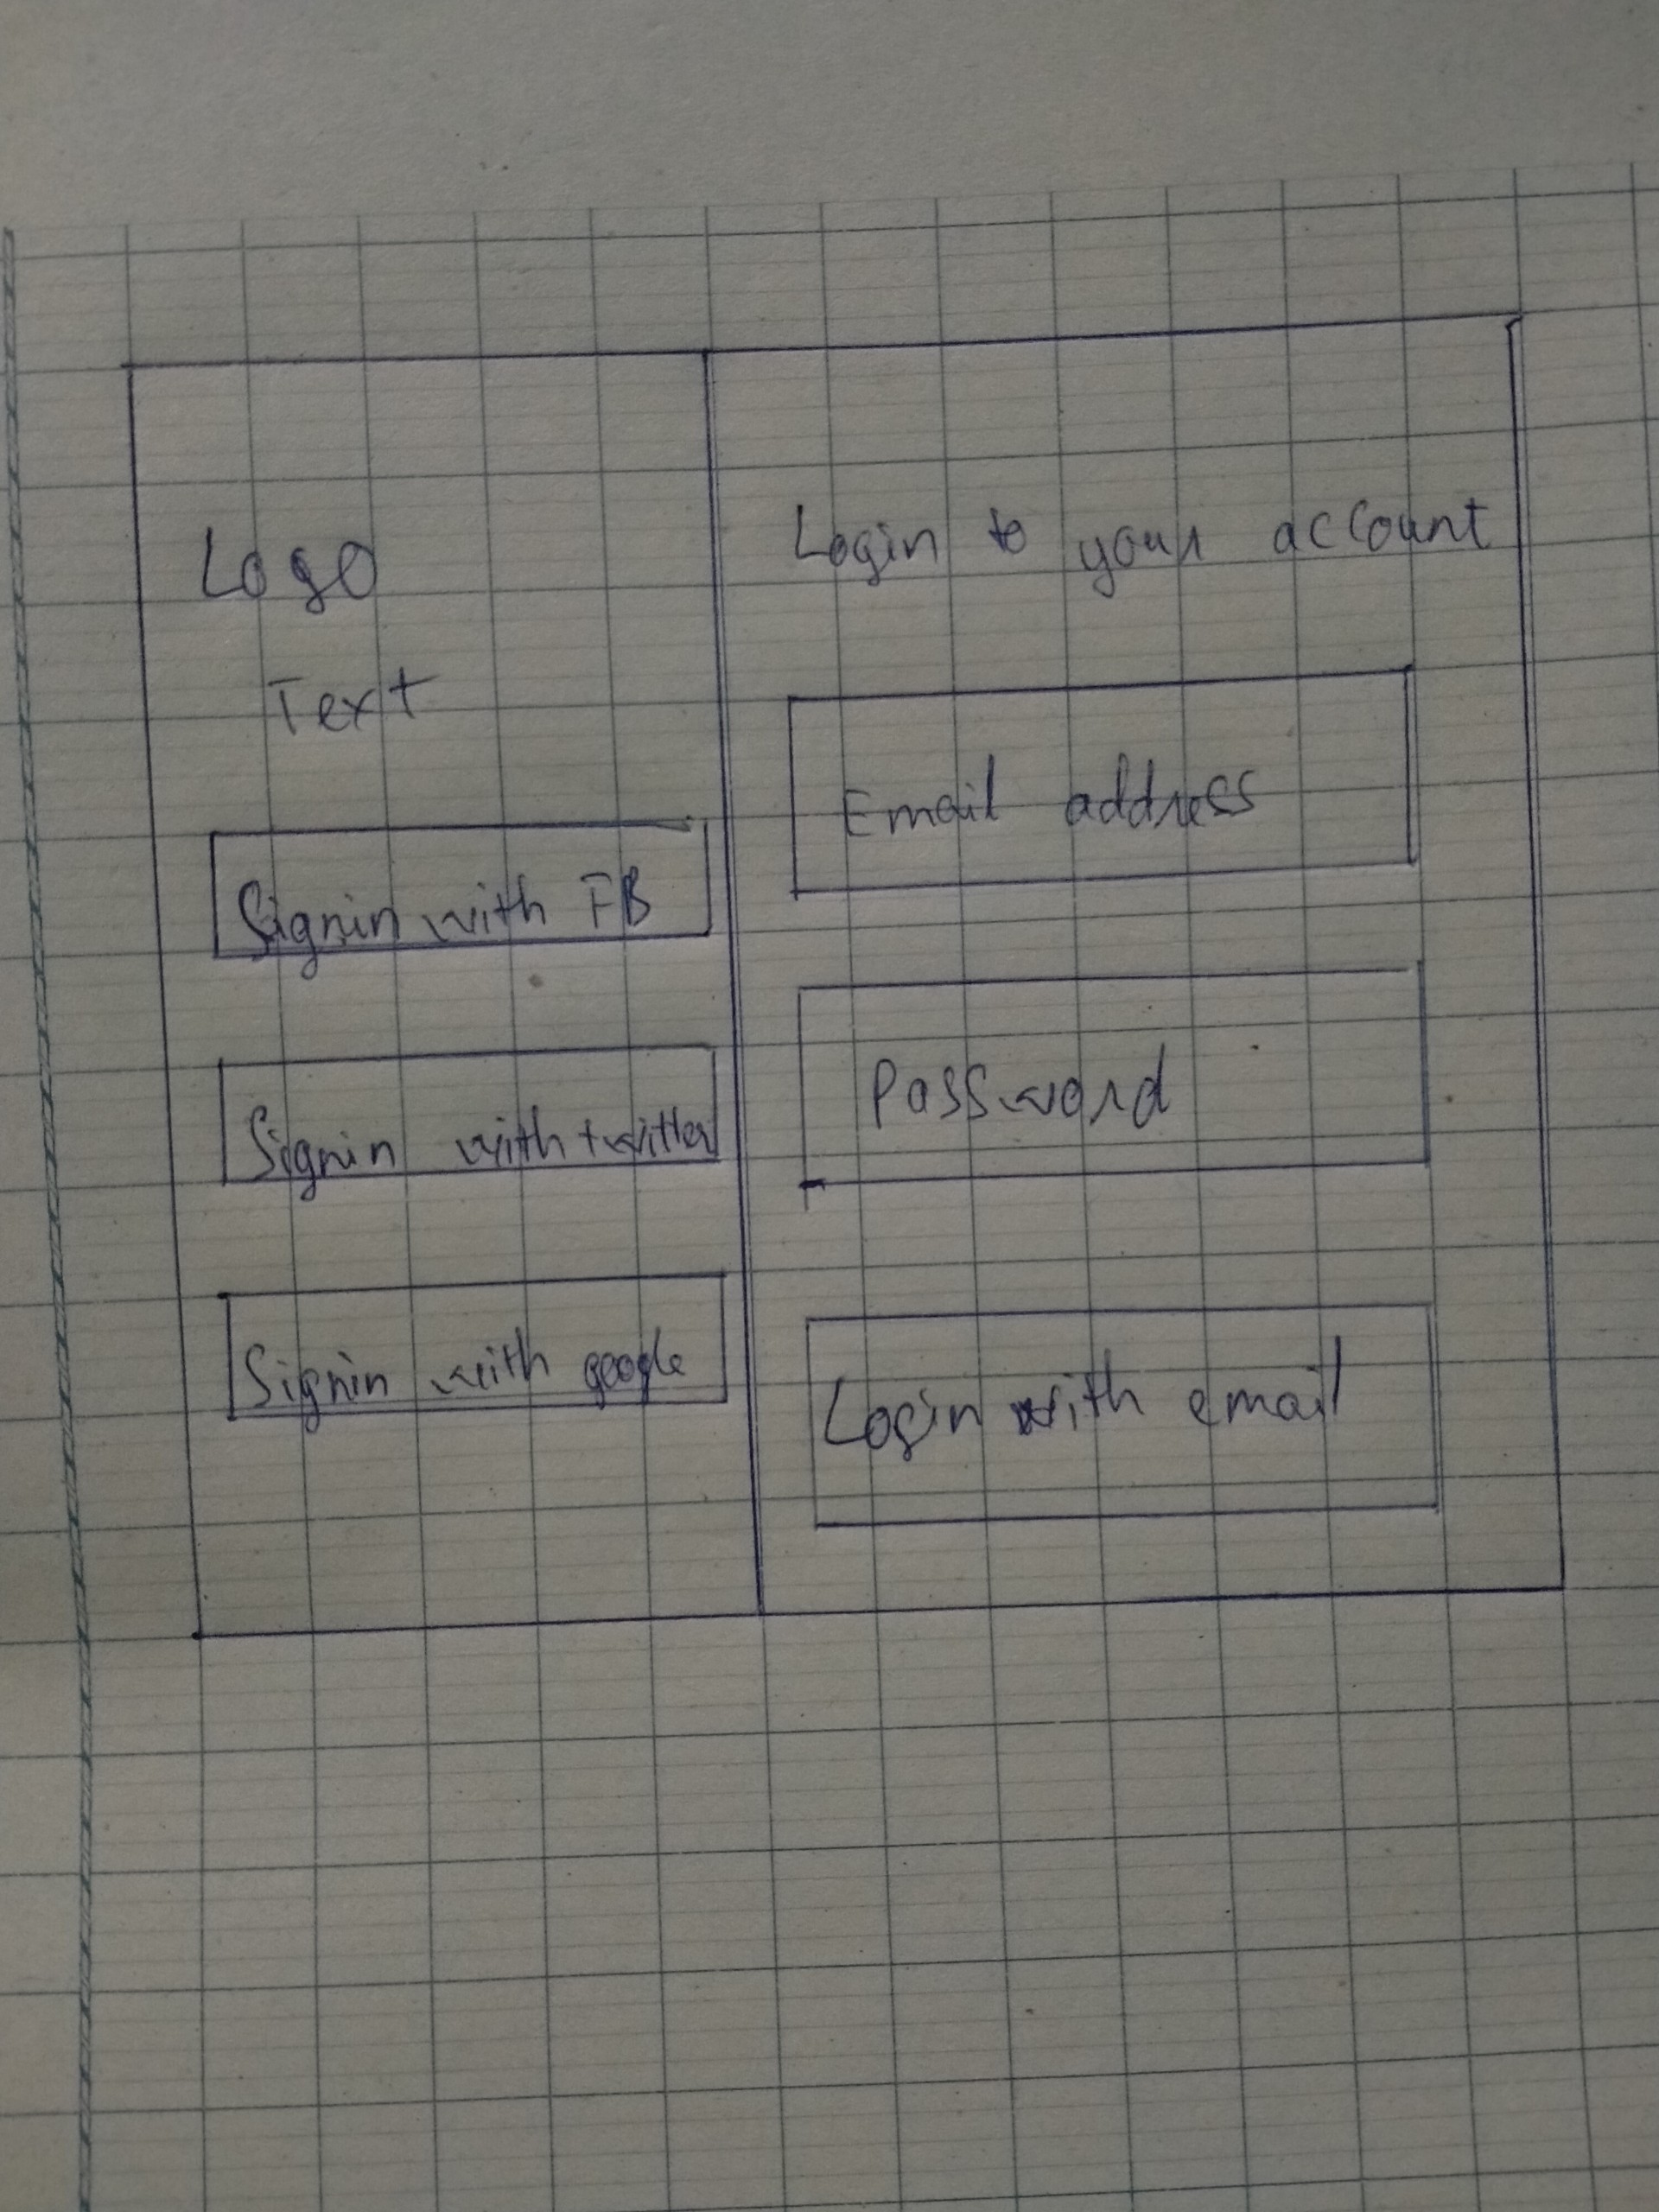 Logo
Text
Signin with FB
Signin with twitter
Signin with google
Login to your account
Email address
Password
Login with email